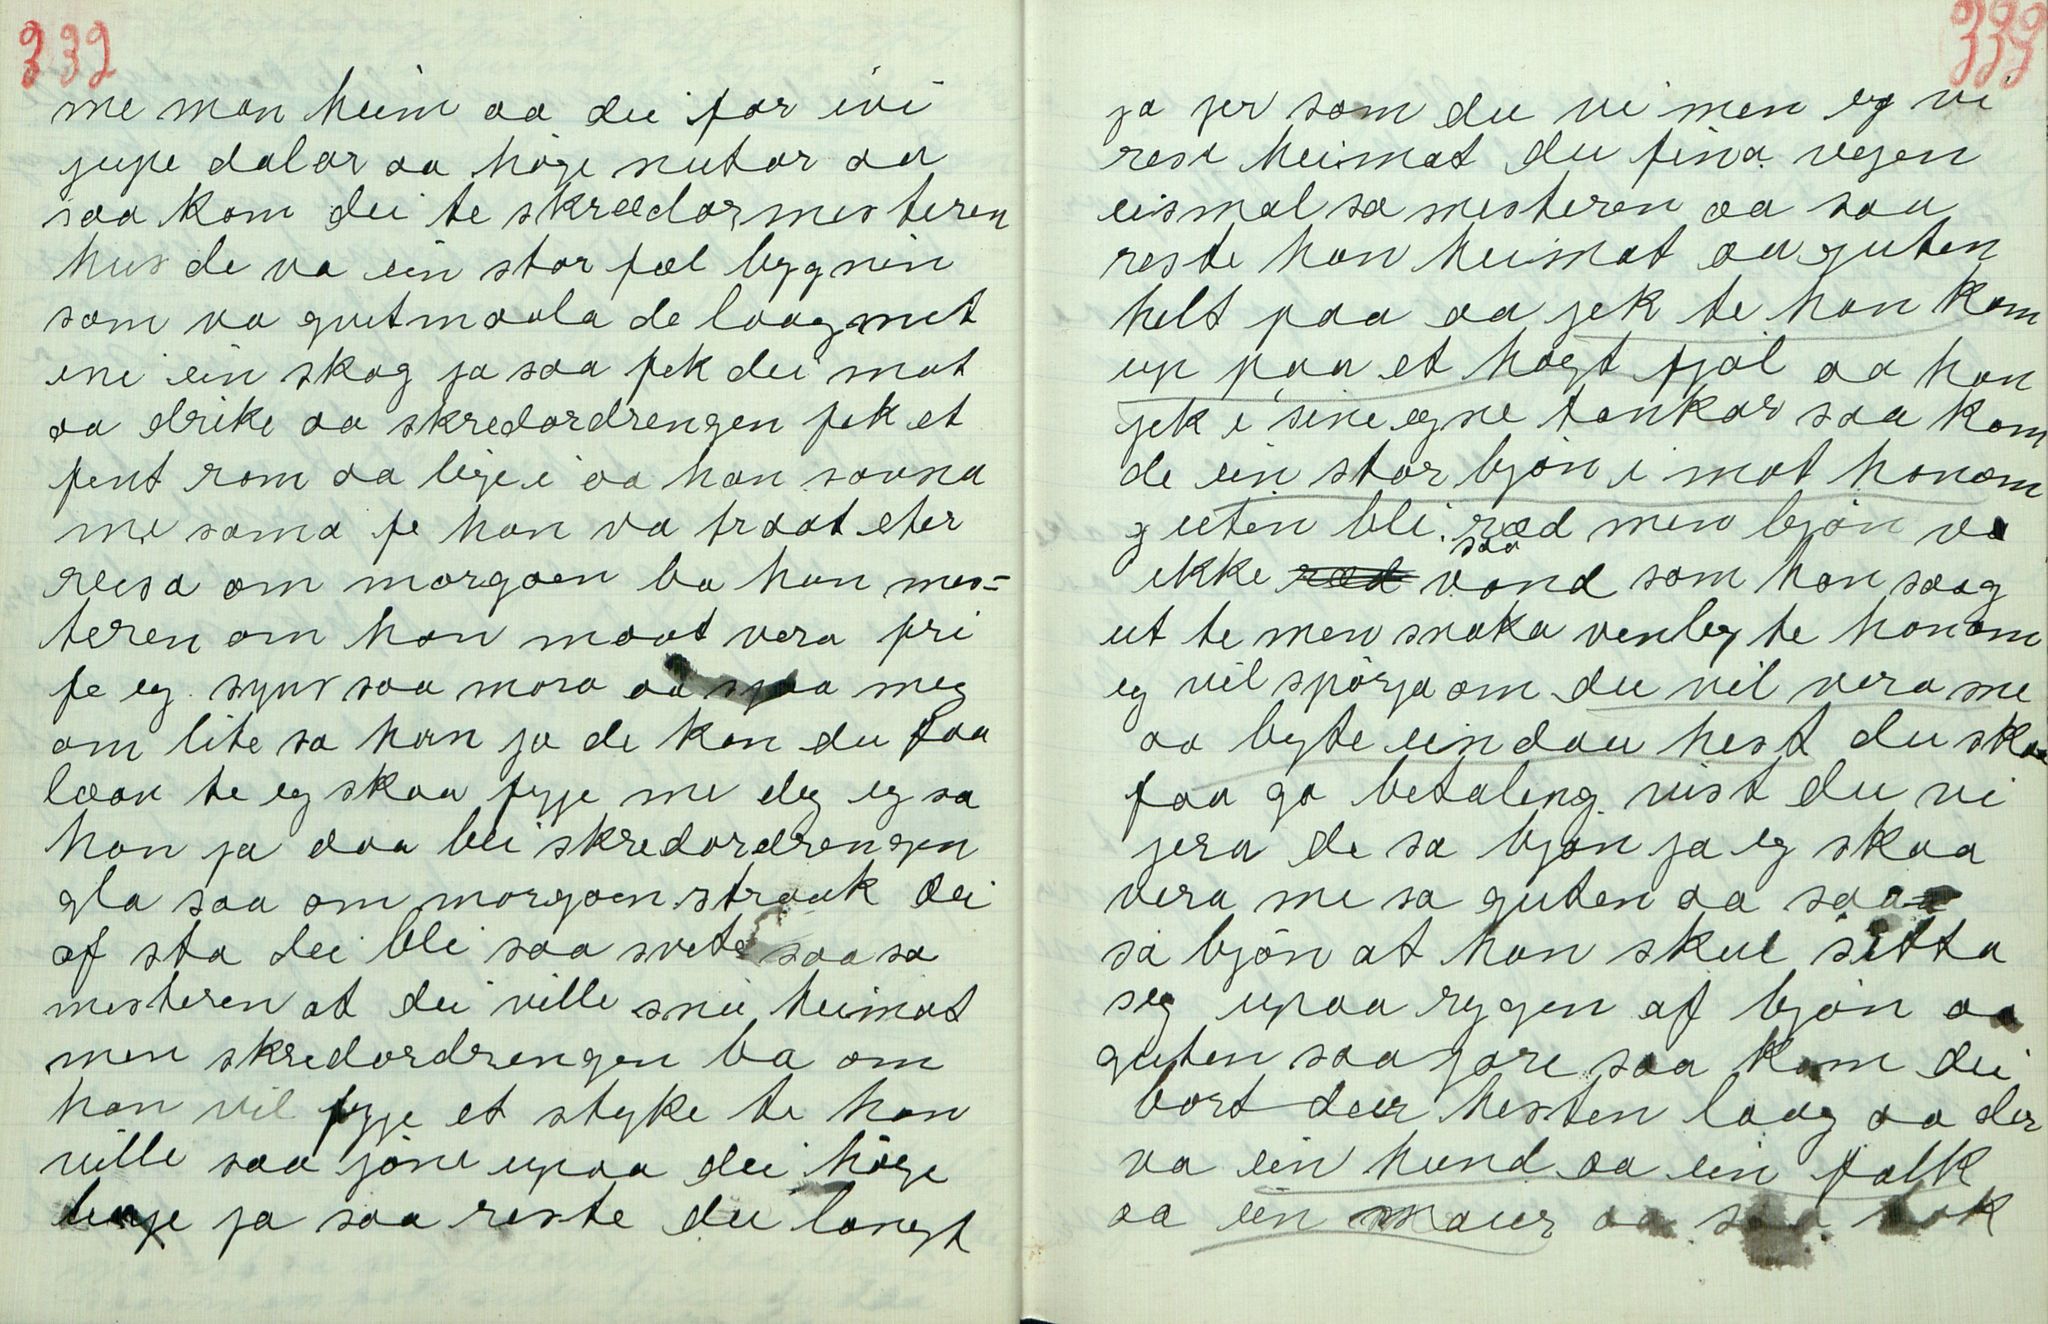 332
me man heim aa dei for ivi
jupe dalar aa høge nutar aa
saa kom dei te skrædarmesteren
hus de va ein stor fæl bygnin
som va qvitmaala de laag mit
ini ein skog ja saa fek dei mat
aa drike aa skredardrengen fek et
pent rom aa ligje i aa han sovna
me sama fe han va traat eter
reisa om morgoen ba han mes=
teren om han maat vera fri
fe eg syns saa mora aa sjaa meg
om lite sa han ja de kan du faa
laav te eg skaa fyje me deg eg sa
han ja daa blei skredardrengen
gla saa om morgoen straak dei
af sta dei blei saa svete saa sa
mesteren at dei ville snu heimat
men skredardrengen ba om
han vil fyje et styke te han
ville saa jøne upaa dei høge
tinje ja saa reste dei langt
333
ja jer som du vi men eg vi
rese heimat du fina vegen
eismal sa mesteren aa saa
reste han heimat aa guten
helt paa aa jek te han kom
up paa et høgt fjøl aa han
jek i sine egne tankar saa kom
de ein stor bjøn i mot honom
guten blei ræd men bjøn va
ikke ræd saa vond som han saag
ut te men snaka venleg te honom
eg vil spørja om du vil vera me
aa byte ein dau hest du skaa
faa go betaling vist du vi
jera de sa bjøn ja eg skaa
vera me sa guten aa saa
sa bjøn at han skul sitta
seg upaa rygen af bjøn aa
guten saa gore saa kom dei
bort der hesten laag aa der
va ein hund aa ein falk
aa ein maur aa saa